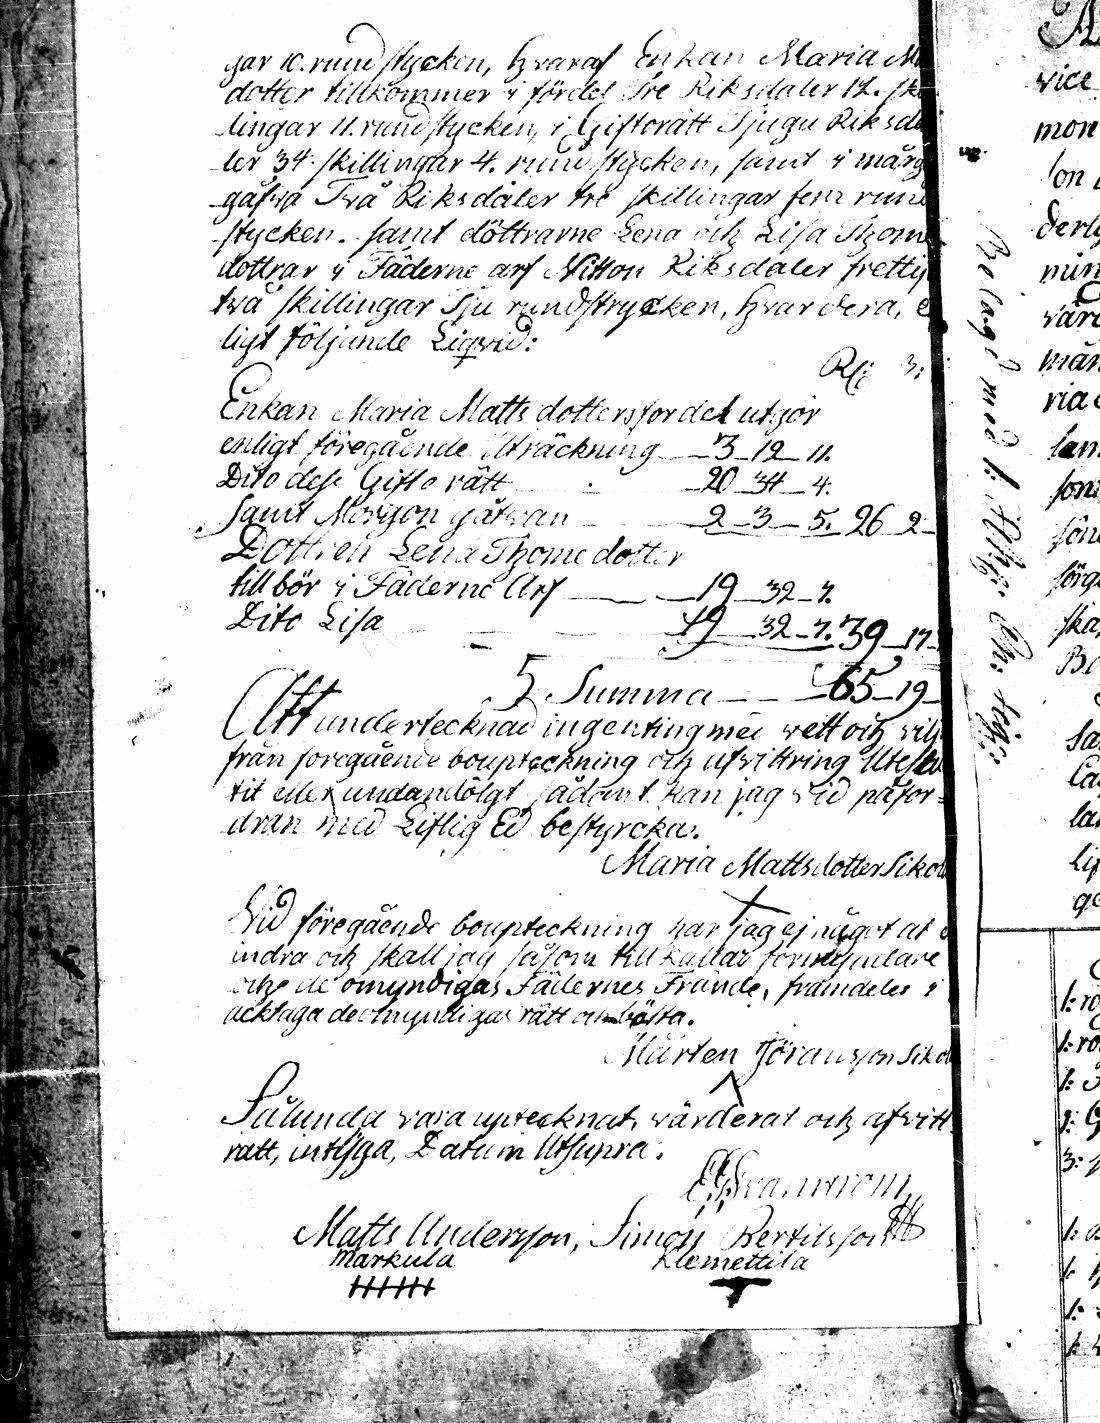 gar 10. rundstycken, hvaraf Enkan Maria M
dotter tillkommer i fördel Tre Riksdaler 12. ski
lingar 11. rundstycken, i Giftorätt Tjugu Riksda
ler 34. skillingar 4. rundstycken, samt i mårg
gåfva Två Riksdaler tre skillingar fem rund
stycken. samt döttrarne Lena och Lisa Thom
dottrar i Fäderne arf Nitton Riksdaler trettij
två skillingar Sju rundstycken, hvardera, e
ligt följande Liqvid:
Rd: 3:
Enkan Maria Matts dotters fördel utgör
enligt föregående Uträckning 3 12 11.
Dito dess Gifto rätt 20 34 4.
samt Morgon gåfvan 2 3 5. 26 2
Dottren Lena Thomedotter
tillhör i Fäderne Arf 19 32 7.
Dito Lisa 19 32 7. 39 17
Summa 65 19
Att undertecknad ingenting med vett och vilj
från föregående bouptekning och afvittring Uteslu
tit eller undandölgt sådant kan jag vid påfor=
dran med Liflig Ed bestyrcka.
Maria Mattsdotter Sikol
Vid föregående bouptekning har jag ej något at e
indra och skall jag såsom tillkallad förmyndare
och de omyndigas Fädernes Frände, framdeles i
acktaga de omyndigas rätt och bästa.
Mårten Jöransson Sikol
Sålunda vara uptecknat, värderat och afvitt
ratt, intyga, Datum Utsupra.
Matts Andersson, Simon Bertilsson
Markula Klemettila
Bolagd med
A
vice
mon
son
derly
min
värd
män
ria
sam
son
sön
förg
ska
Bo
Sa
la
lip
ge